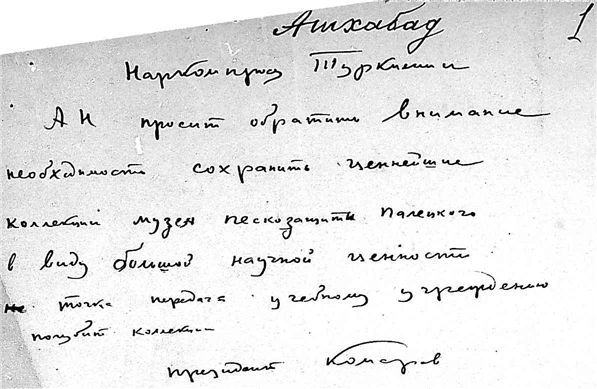 Ашхабад 1
Наркомпрос Туркмении
АН просит обратить внимание
необходимость сохранить ценнейшие
коллекции музея пескозащиты Палецкого
в виду большой научной ценности
точка передача учебному учреждению
погубит коллекции
президент Комаров